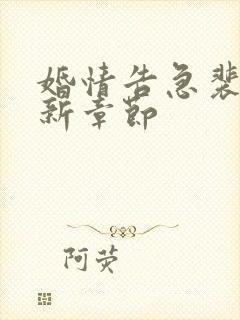 婚情告急裴
新章节
阿荧